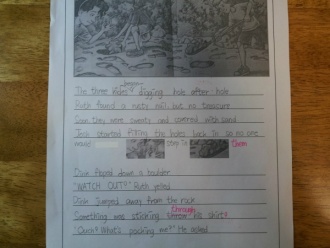 began
The three kids digging hole after hole
Ruth found a rusty nail but no treasure
Soon they were sweaty and covered with sand
Josh started filling the holes back in so no one
would step in them
Dink flopped down a boulder
"WATCH OUT!" Ruth yelled
Dink jumped away from the rock
through
Something was sticking throw his skirt
"Ouch! What's poching me?" He asked